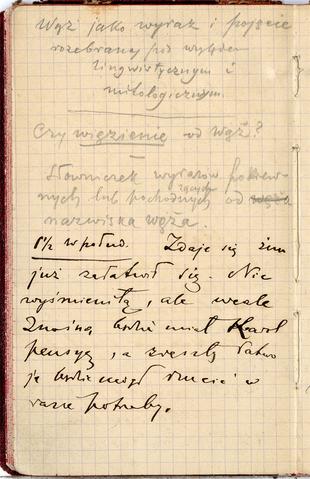 Wąż jako wyraz i pojęcie
rozebrany pod względem
lingwistycznym i
mitologicznym.
Czy więzienie od wąż?
Słowniczek wyrazów pokrew-
nych lub pochodnych od węża
nazwiska węża.
1½ w połud. Zdaje się żem
już załatwił się. Nie
wyśmienitą, ale wcale
znośną będzie miał Karol
pensyę, a zresztą łatwo
ją będzie mógł rzucić w
razie potrzeby.